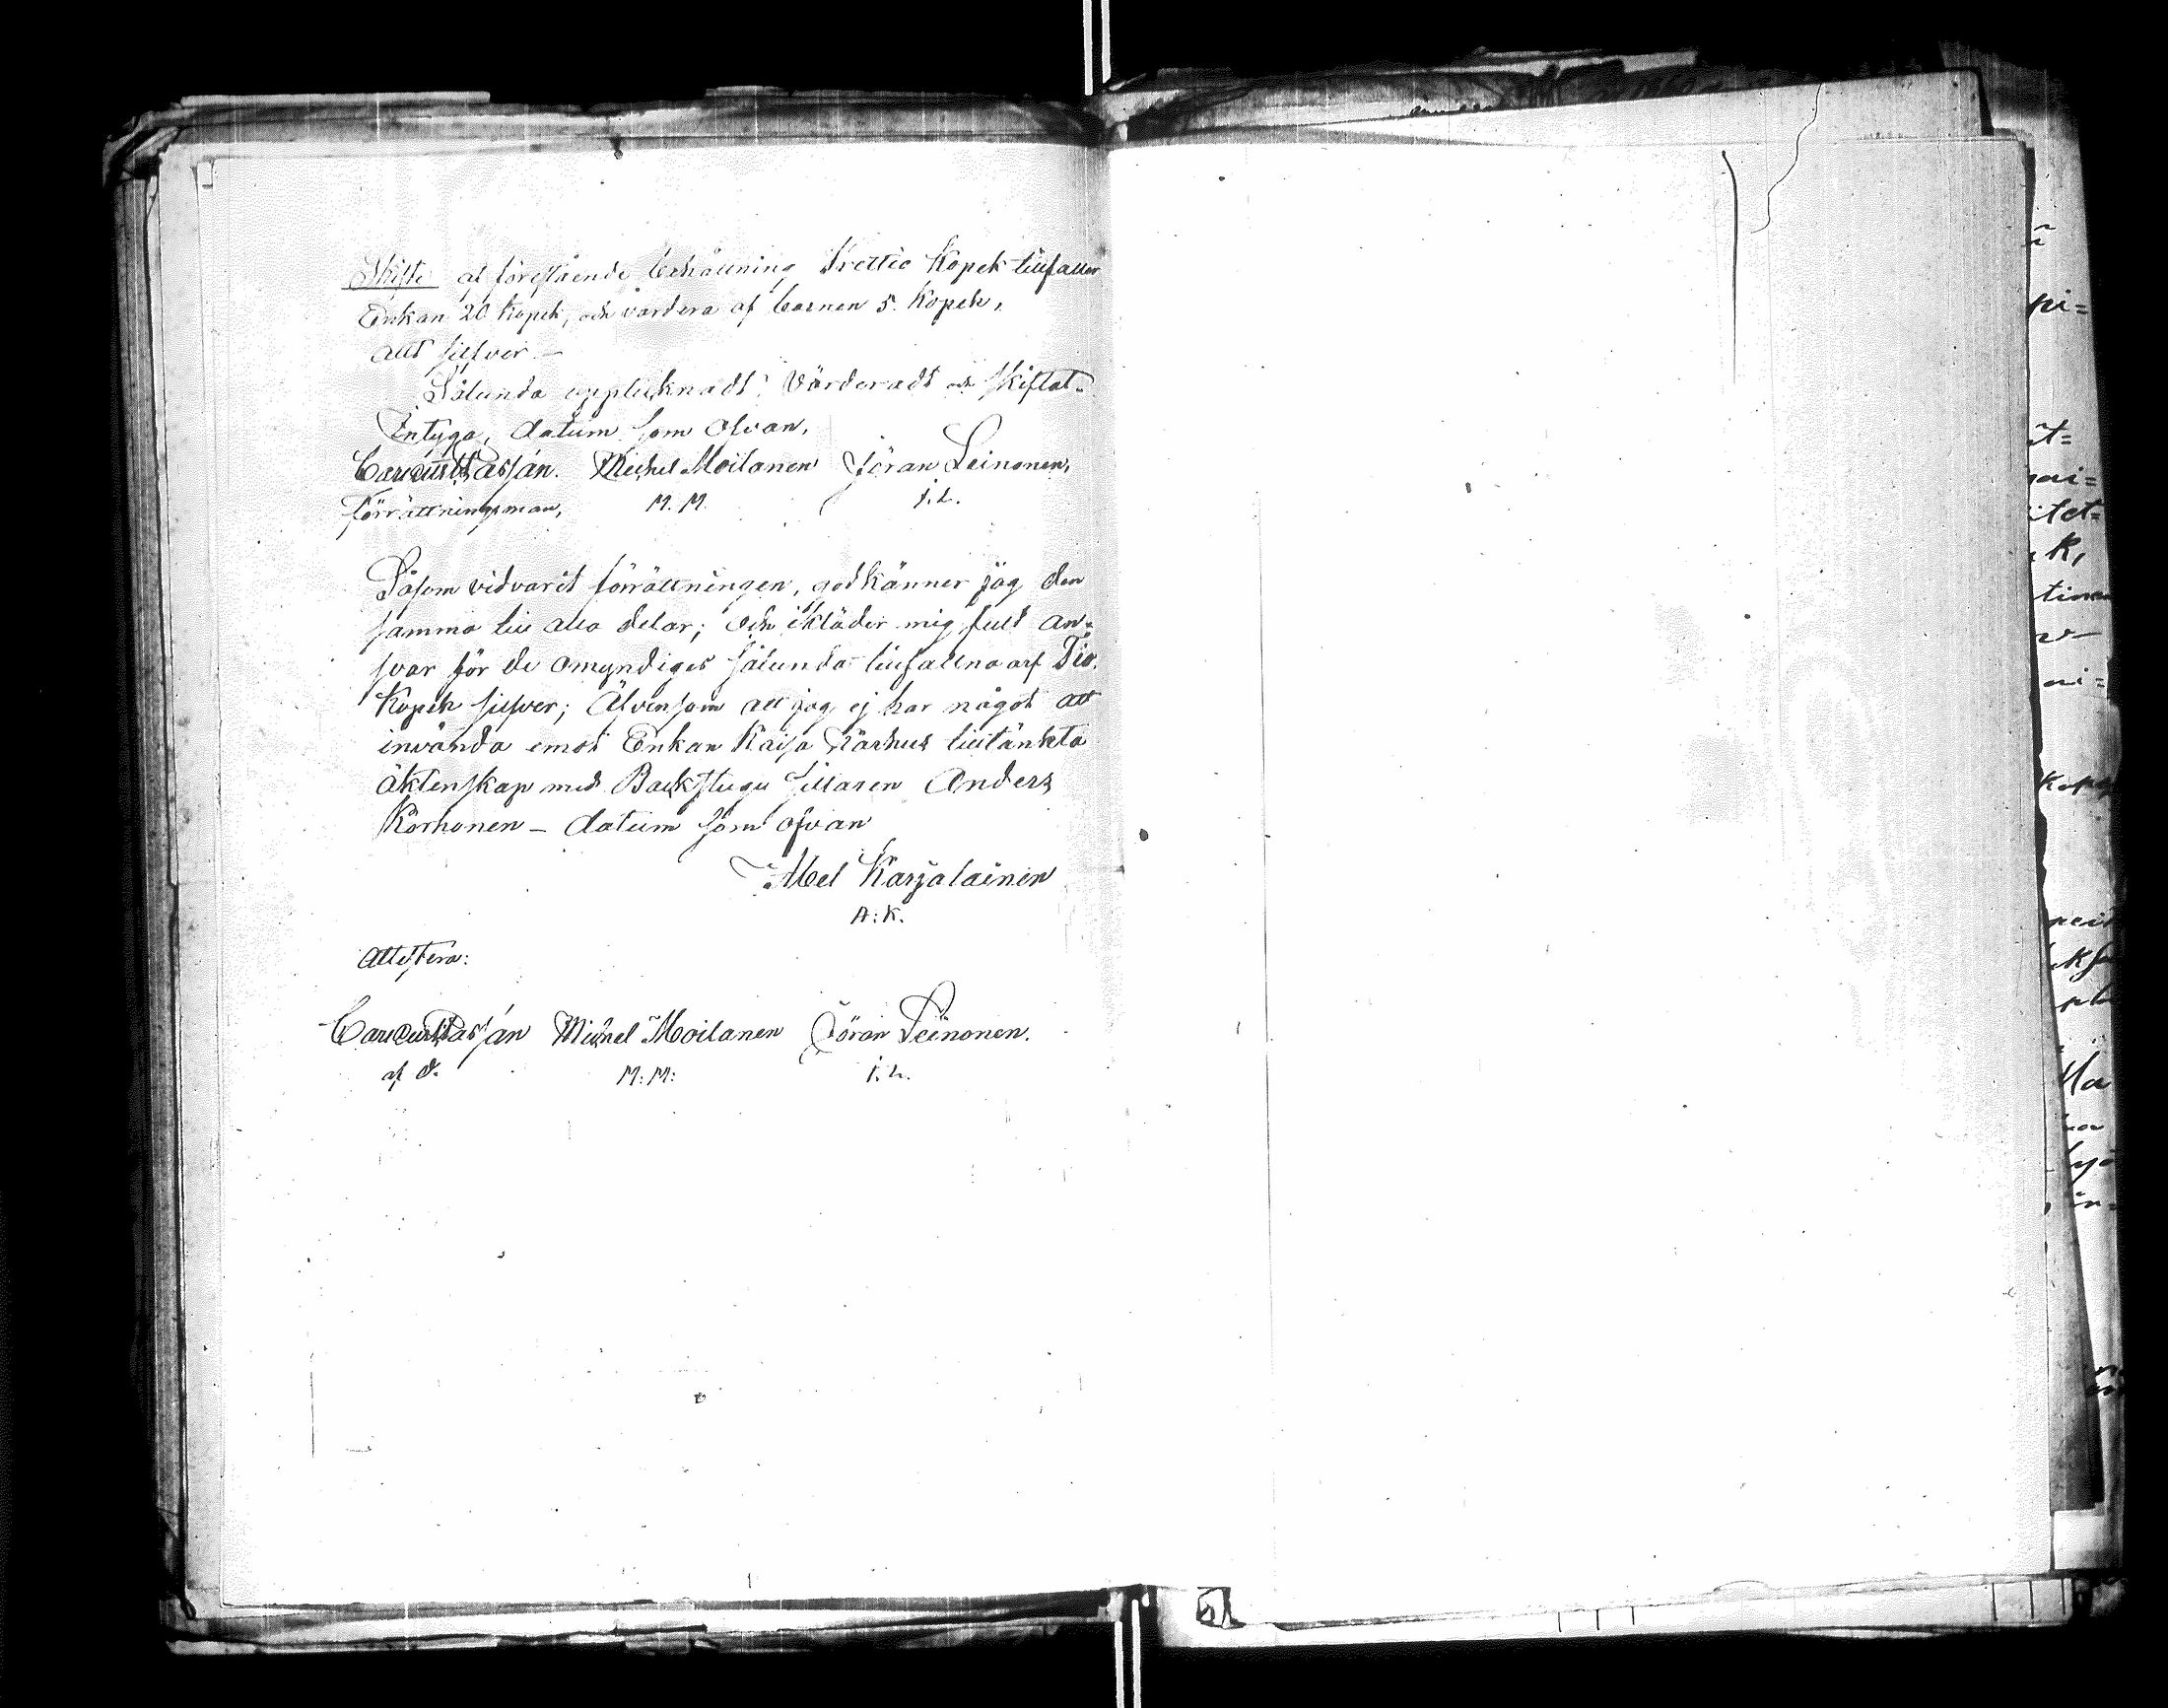 Skifte af förestående behållning Trettio Kopek tillfaller
Enkan 20 Kopek, och vardera af barnen 5. Kopek,
allt silfver. —
Sålunda upptecknadt, Värderadt och skiftat.
Intyga, datum som ofvan.
Carl Gust Passján. Michel Moilanen Jöran Leinonen,
Förrättningsman, M. M. J. L.
Såsom vidvarit förrättningen, godkänner jag den
samma till alla delar; och ikläder mig fullt an=
svar för de omyndiges sålunda tillfallna arf Tio
Kopek silfver; Äfvensom att jag ej har något att
invända emot Enkan Kaisa Karhus tilltänkta
äktenskap med Backstugu sittaren Anders
Korhonen — datum som ofvan
Abel Karjalainen
A: K.
Attestera:
Carl Gust Passján Michel Moilanen Jöran Leinonen.
af d. M: M: J. L.
pi=
K,